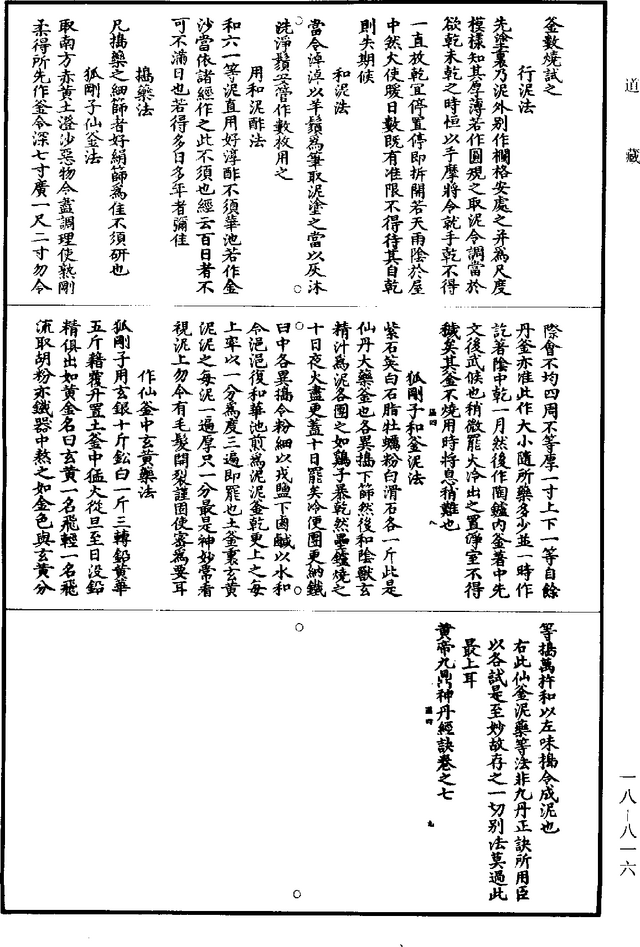 道藏
釜數燒試之
行泥法
先塗裏乃泥外别作欄格安處之并為尺度
模樣知其厚薄若作圓規之取泥令調當於
欲乾未乾之時恒以手摩將令就手乾不得
一直放乾宜停置停即拆開若天雨陰於屋
中然大使暖日數既有准限不得待其自乾
則失期候
和泥法
當令淖淖以羊鬚為筆取泥塗之當以灰沐
洗淨鬚安管作數枚用之
用和泥酢法
和六一等泥直用好淳酢不須華池若作金
沙當依諸經作之此不須也經云百日者不
可不滿日也若得多日多年者彌佳
搗藥法
凡搗藥之細篩者好絹篩為佳不須研也
狐剛子仙釜法
取南方赤黃土澄沙惡物令盡調理使熟剛
柔得所先作釜令深七寸廣一尺二寸勿令
際會不均四周不等厚一寸上下一等自餘
丹釜亦准此作大小隨所藥多少並一時作
訖著陰中乾一月然後作陶鑪內釜著中先
文後武候也稍微罷火冷出之置淨室不得
穢矣其釜不燒用時將息稍難也
狐剛子和釜泥法
紫石英白石脂牡蠣粉白滑石各一斤此是
仙丹大藥釜也各異搗下篩然後和陰獸玄
精汁為泥各團之如鷄子暴乾然壘鑪燒之
十日夜火盡更蓋十日罷矣冷便團更納鐵
臼中各異搗令粉細以戎鹽下鹵鹹以水和
令浥浥復和華池煎為泥泥釜乾更上之每
上率以一分為度三遍即罷也土釜裏玄黃
泥泥之每泥一遍厚只一分最是神妙常看
視泥上勿令有毛髮開裂謹固使密為要耳
作仙釜中玄黃藥法
狐剛子用玄銀十斤鈆白一斤三轉鉛黃華
五斤藉覆丹置土釜中猛火從旦至日没鉛
精俱出如黃金名曰玄黃一名飛輕一名飛
流取胡粉亦鐵器中熬之如金色與玄黃分
等搗萬杵和以左味搗令成泥也
右此仙釜泥藥等法非九丹正訣所用臣
以各試是至妙故存之一切别法莫過此
最上耳
黃帝九鼎神丹經訣卷之七
一八-八一六